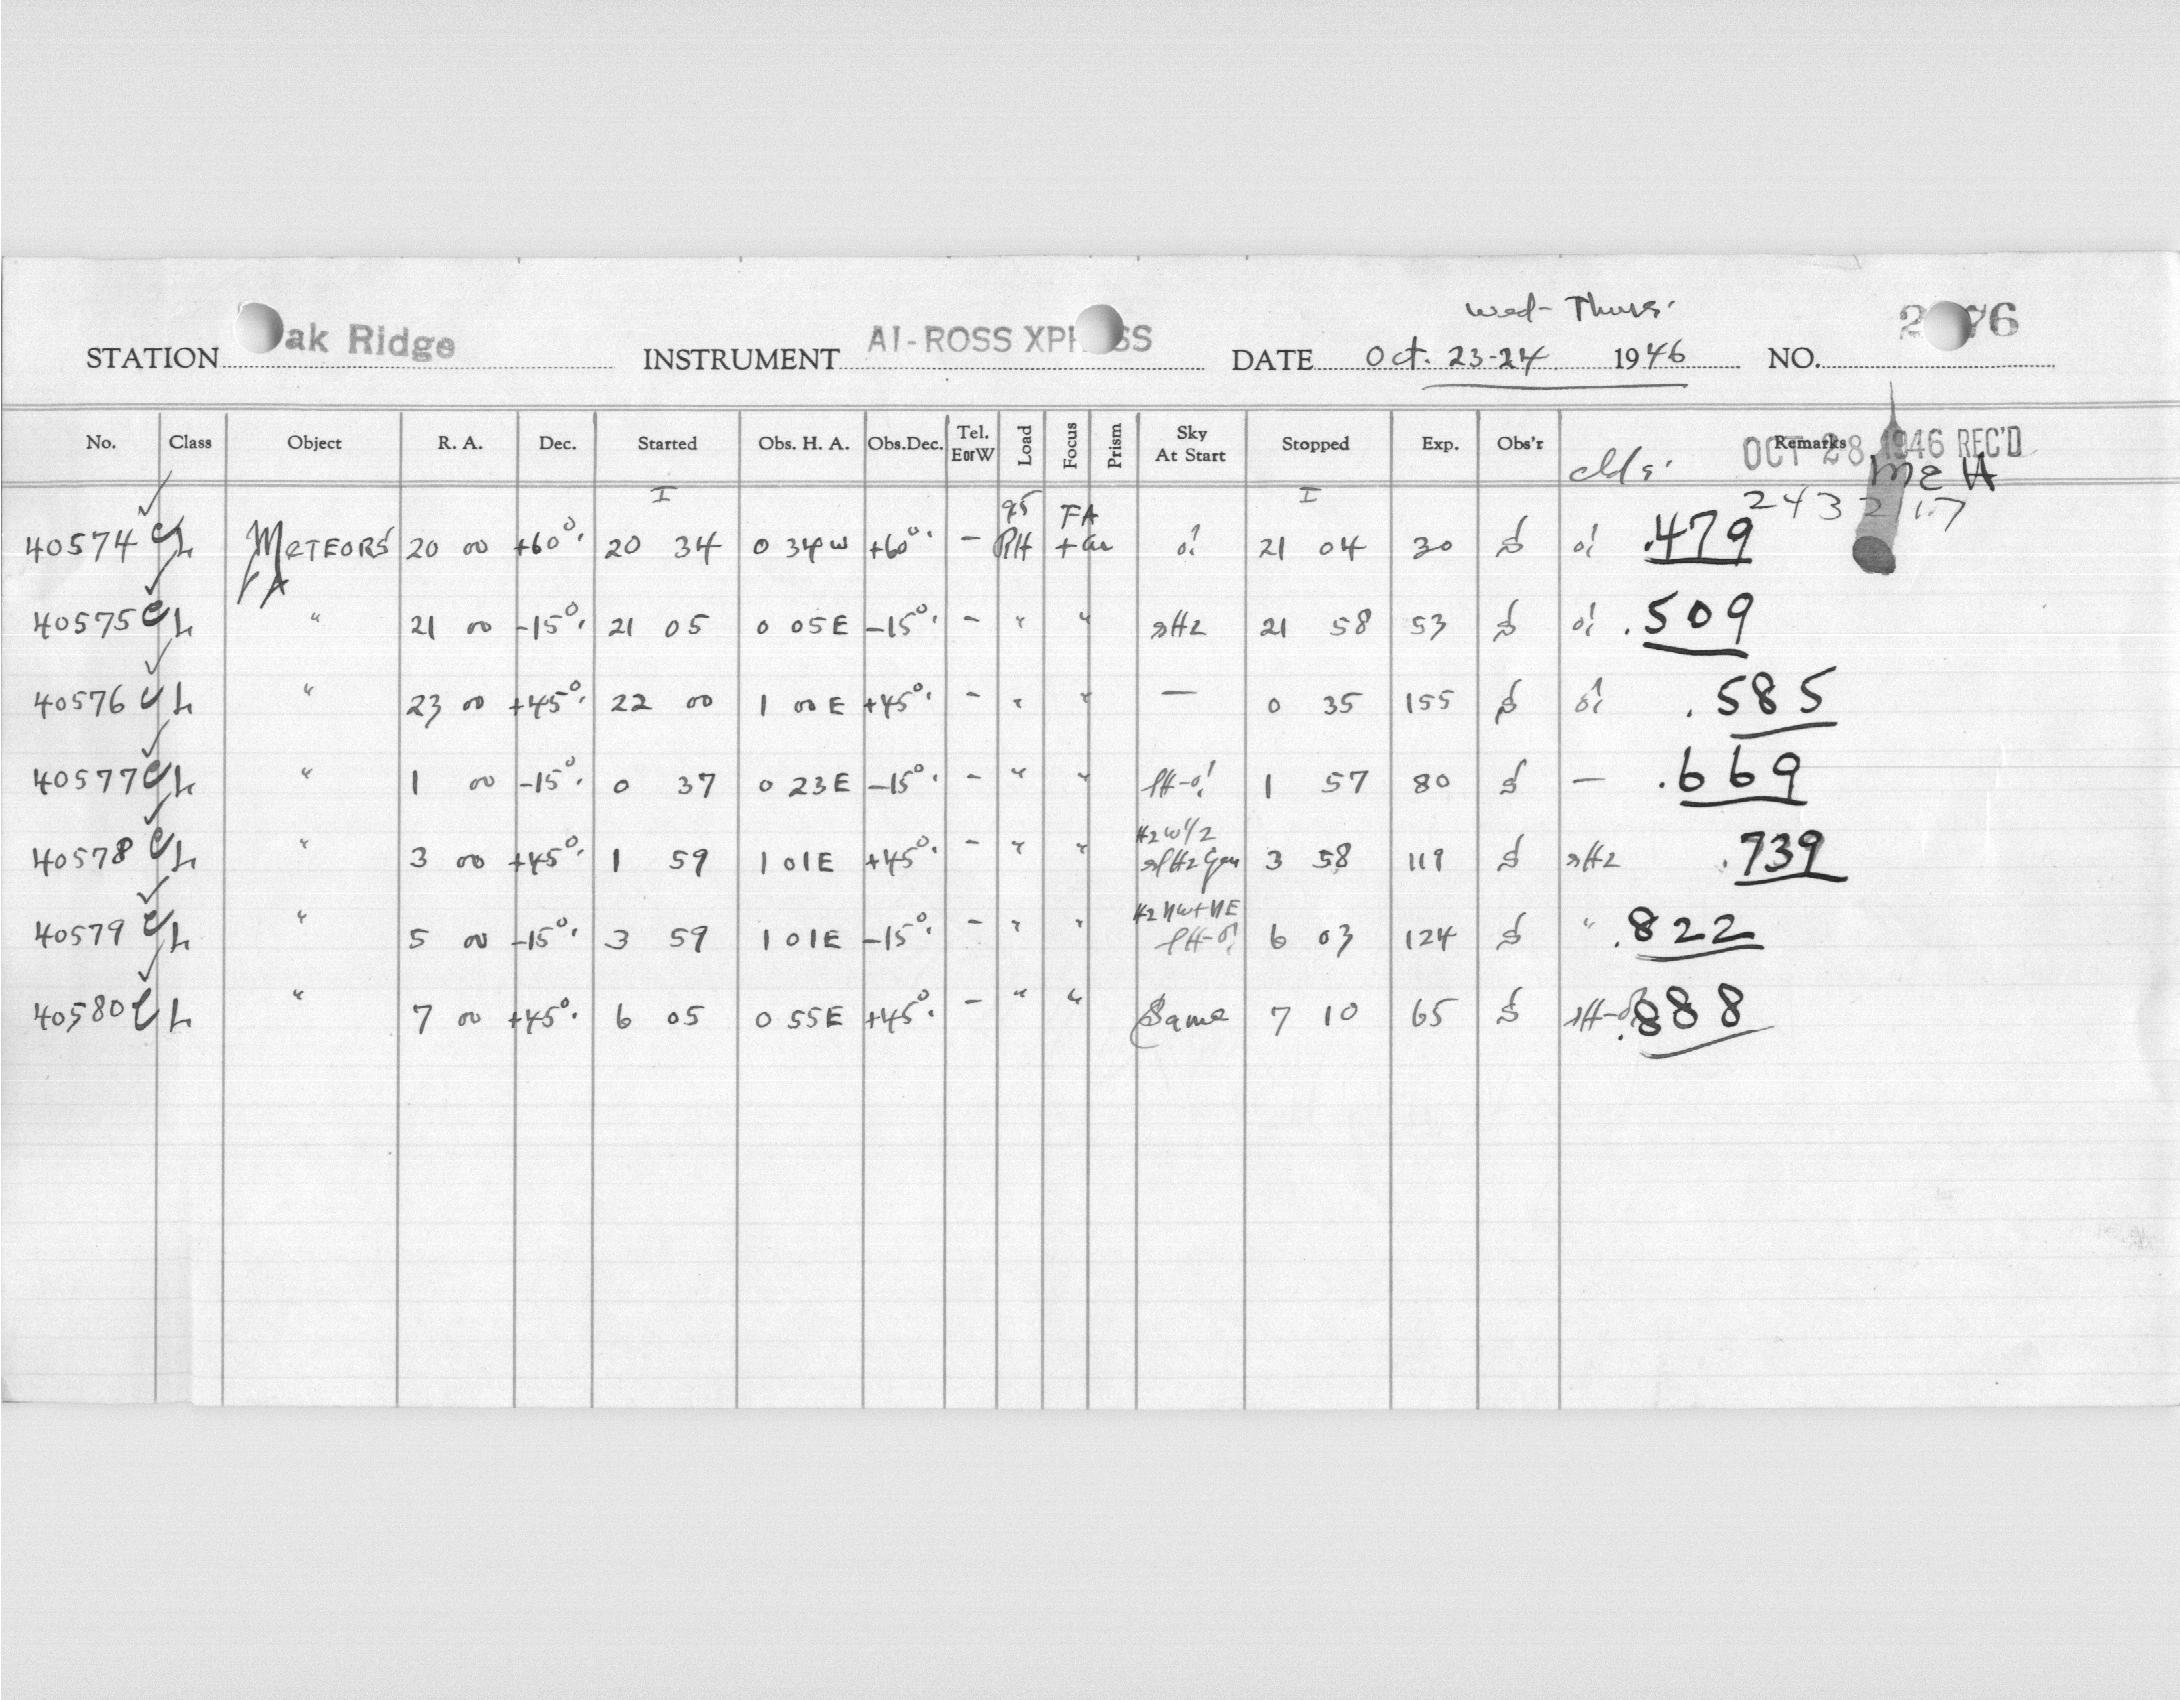 Wed - Thurs.
STATION Oak Ridge INSTRUMENT AI-ROSS XPRESS DATE Oct. 23-24 1946 NO. 76
No. Class Object R. A. Dec. Started Obs. H. A. Obs.Dec. Tel. EorW Load Focus Prism Sky At Start Stopped Exp. Obs'r Remarks
OCT 28 1946 REC'D
McH
I I 243 2 17
40574 L METEORS 20 00 +60° 20 34 0 34 W +60° - FA 21 04 30 .479
40575 L " 21 00 -15° 21 05 0 05 E -15° - " " sHz 21 58 53 .509
40576 L " 23 00 +45° 22 00 1 00 E +45° - " " — 0 35 155 .585
40577 L " 1 00 -15° 0 37 0 23 E -15° - " " 1 57 80 — .669
40578 L " 3 00 +45° 1 59 1 01 E +45° - " " Hz W 1/2 3 58 119 sHz .739
40579 L " 5 00 -15° 3 59 1 01 E -15° - " " Hz NW + NE 6 03 124 " .822
40580 L " 7 00 +45° 6 05 0 55 E +45° - " " Same 7 10 65 .888